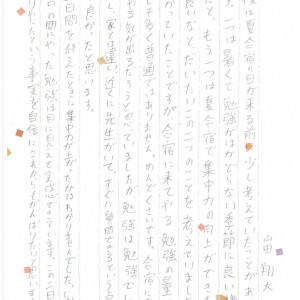 山田 翔大
僕は夏合宿の日が来る前、少し考えていたことがあ
す。一つは暑くて勉強がはかどらない季節に良い
だと、もう一つは夏合宿で集中力の向上ができ
良いなと、だいたいこの二つのことを考えていま
がっていたことですが、合宿に来てやる勉強の量
し多く普通ではありません。めんどくさいです。合宿に
やる気が出るだろうと思っていましたが勉強は勉強で
し、家とは違い近くに先生がいて、すぐに質問できるという点
良かったと思います。
日間を終えたときに集中力が上がったかはわかりませんでした。し
日の間にやった勉強は目に見えて実感できています。この二日
りやったという事実を自信にこれからもがんばりたいと思いま